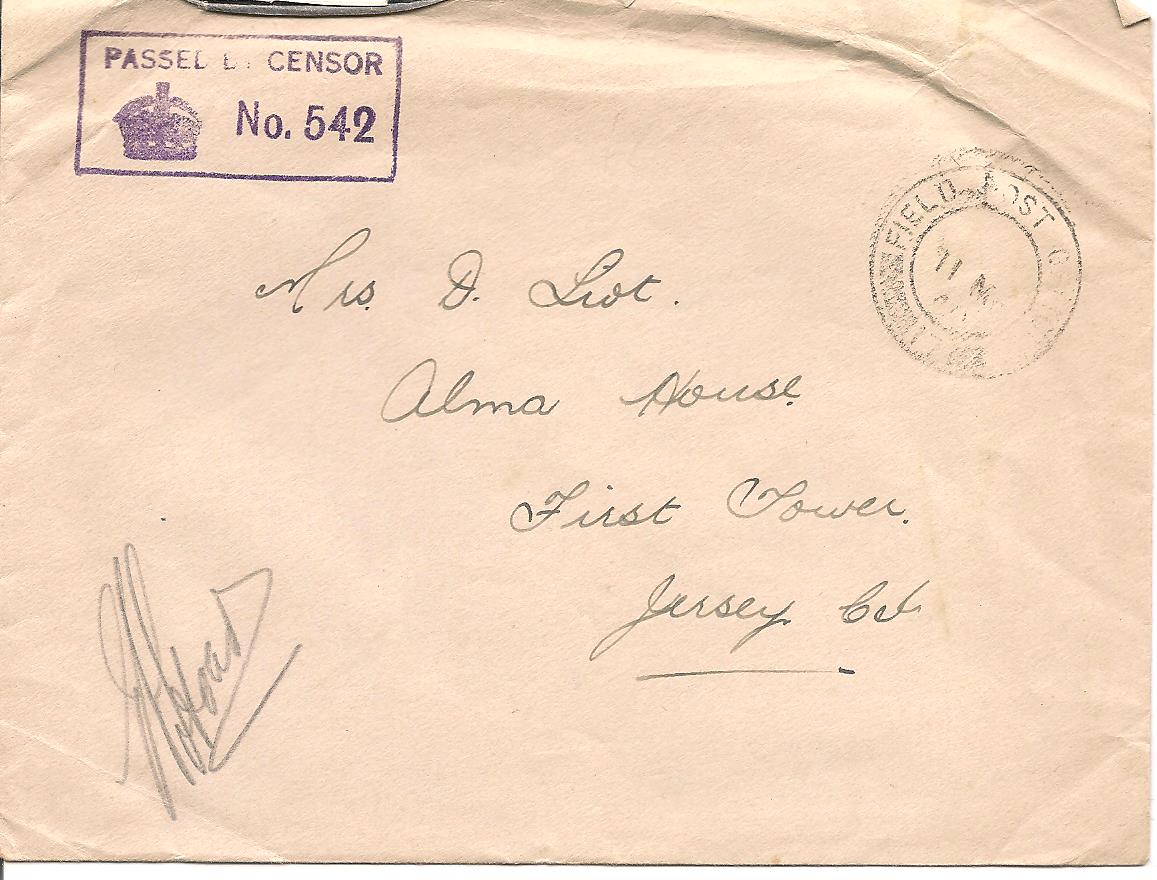 PASSED BY CENSOR
No. 542
FIELD POST OFFICE
11
Mrs. D. Liot.
Alma House
First Tower.
Jersey. C.I.